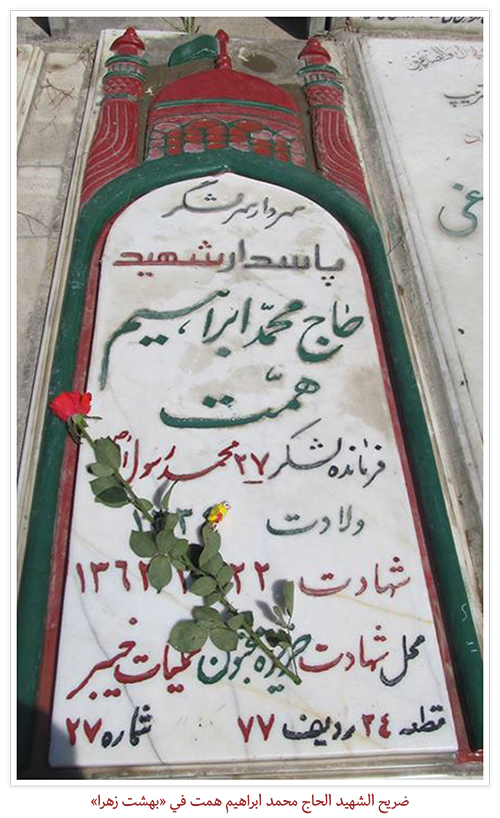 سردار سرلشگر
پاسدار شهید
حاج محمّد ابراهیم
همّت
فرمانده لشکر ۲۷ محمد رسول الله
ولادت
شهادت ۲۲ ۱۳۶۲
محل شهادت جزیره مجنون عملیات خیبر
قطعه ۲۴ ردیف ۷۷ شماره ۲۷
ضريح الشهيد الحاج محمد ابراهيم همت في «بهشت زهرا»